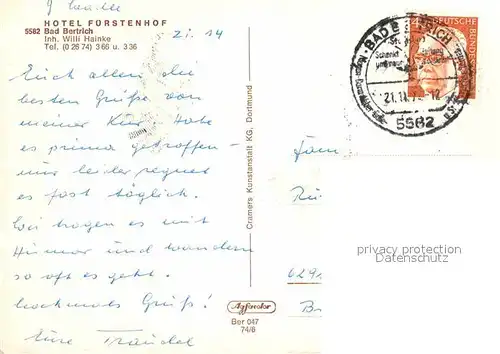 HOTEL FÜRSTENHOF
5582 Bad Bertrich
Inh. Willi Hainke
Tel. (0 26 74) 3 66 u. 3 36
Zi. 14
Euch allen die
besten Grüße von
meiner Kur. Habe
es prima getroffen -
nur leider regnet
es fast täglich.
Wir tragen es mit
Humor und wandern
so oft es geht.
Nochmals Grüße!
Eure Traudel
Cramers Kunstanstalt KG, Dortmund
Agfacolor
Ber 047
74/6
BAD BERTRICH
5582
DEUTSCHE BUNDESPOST
Fam
629
privacy protection
© akpool.de